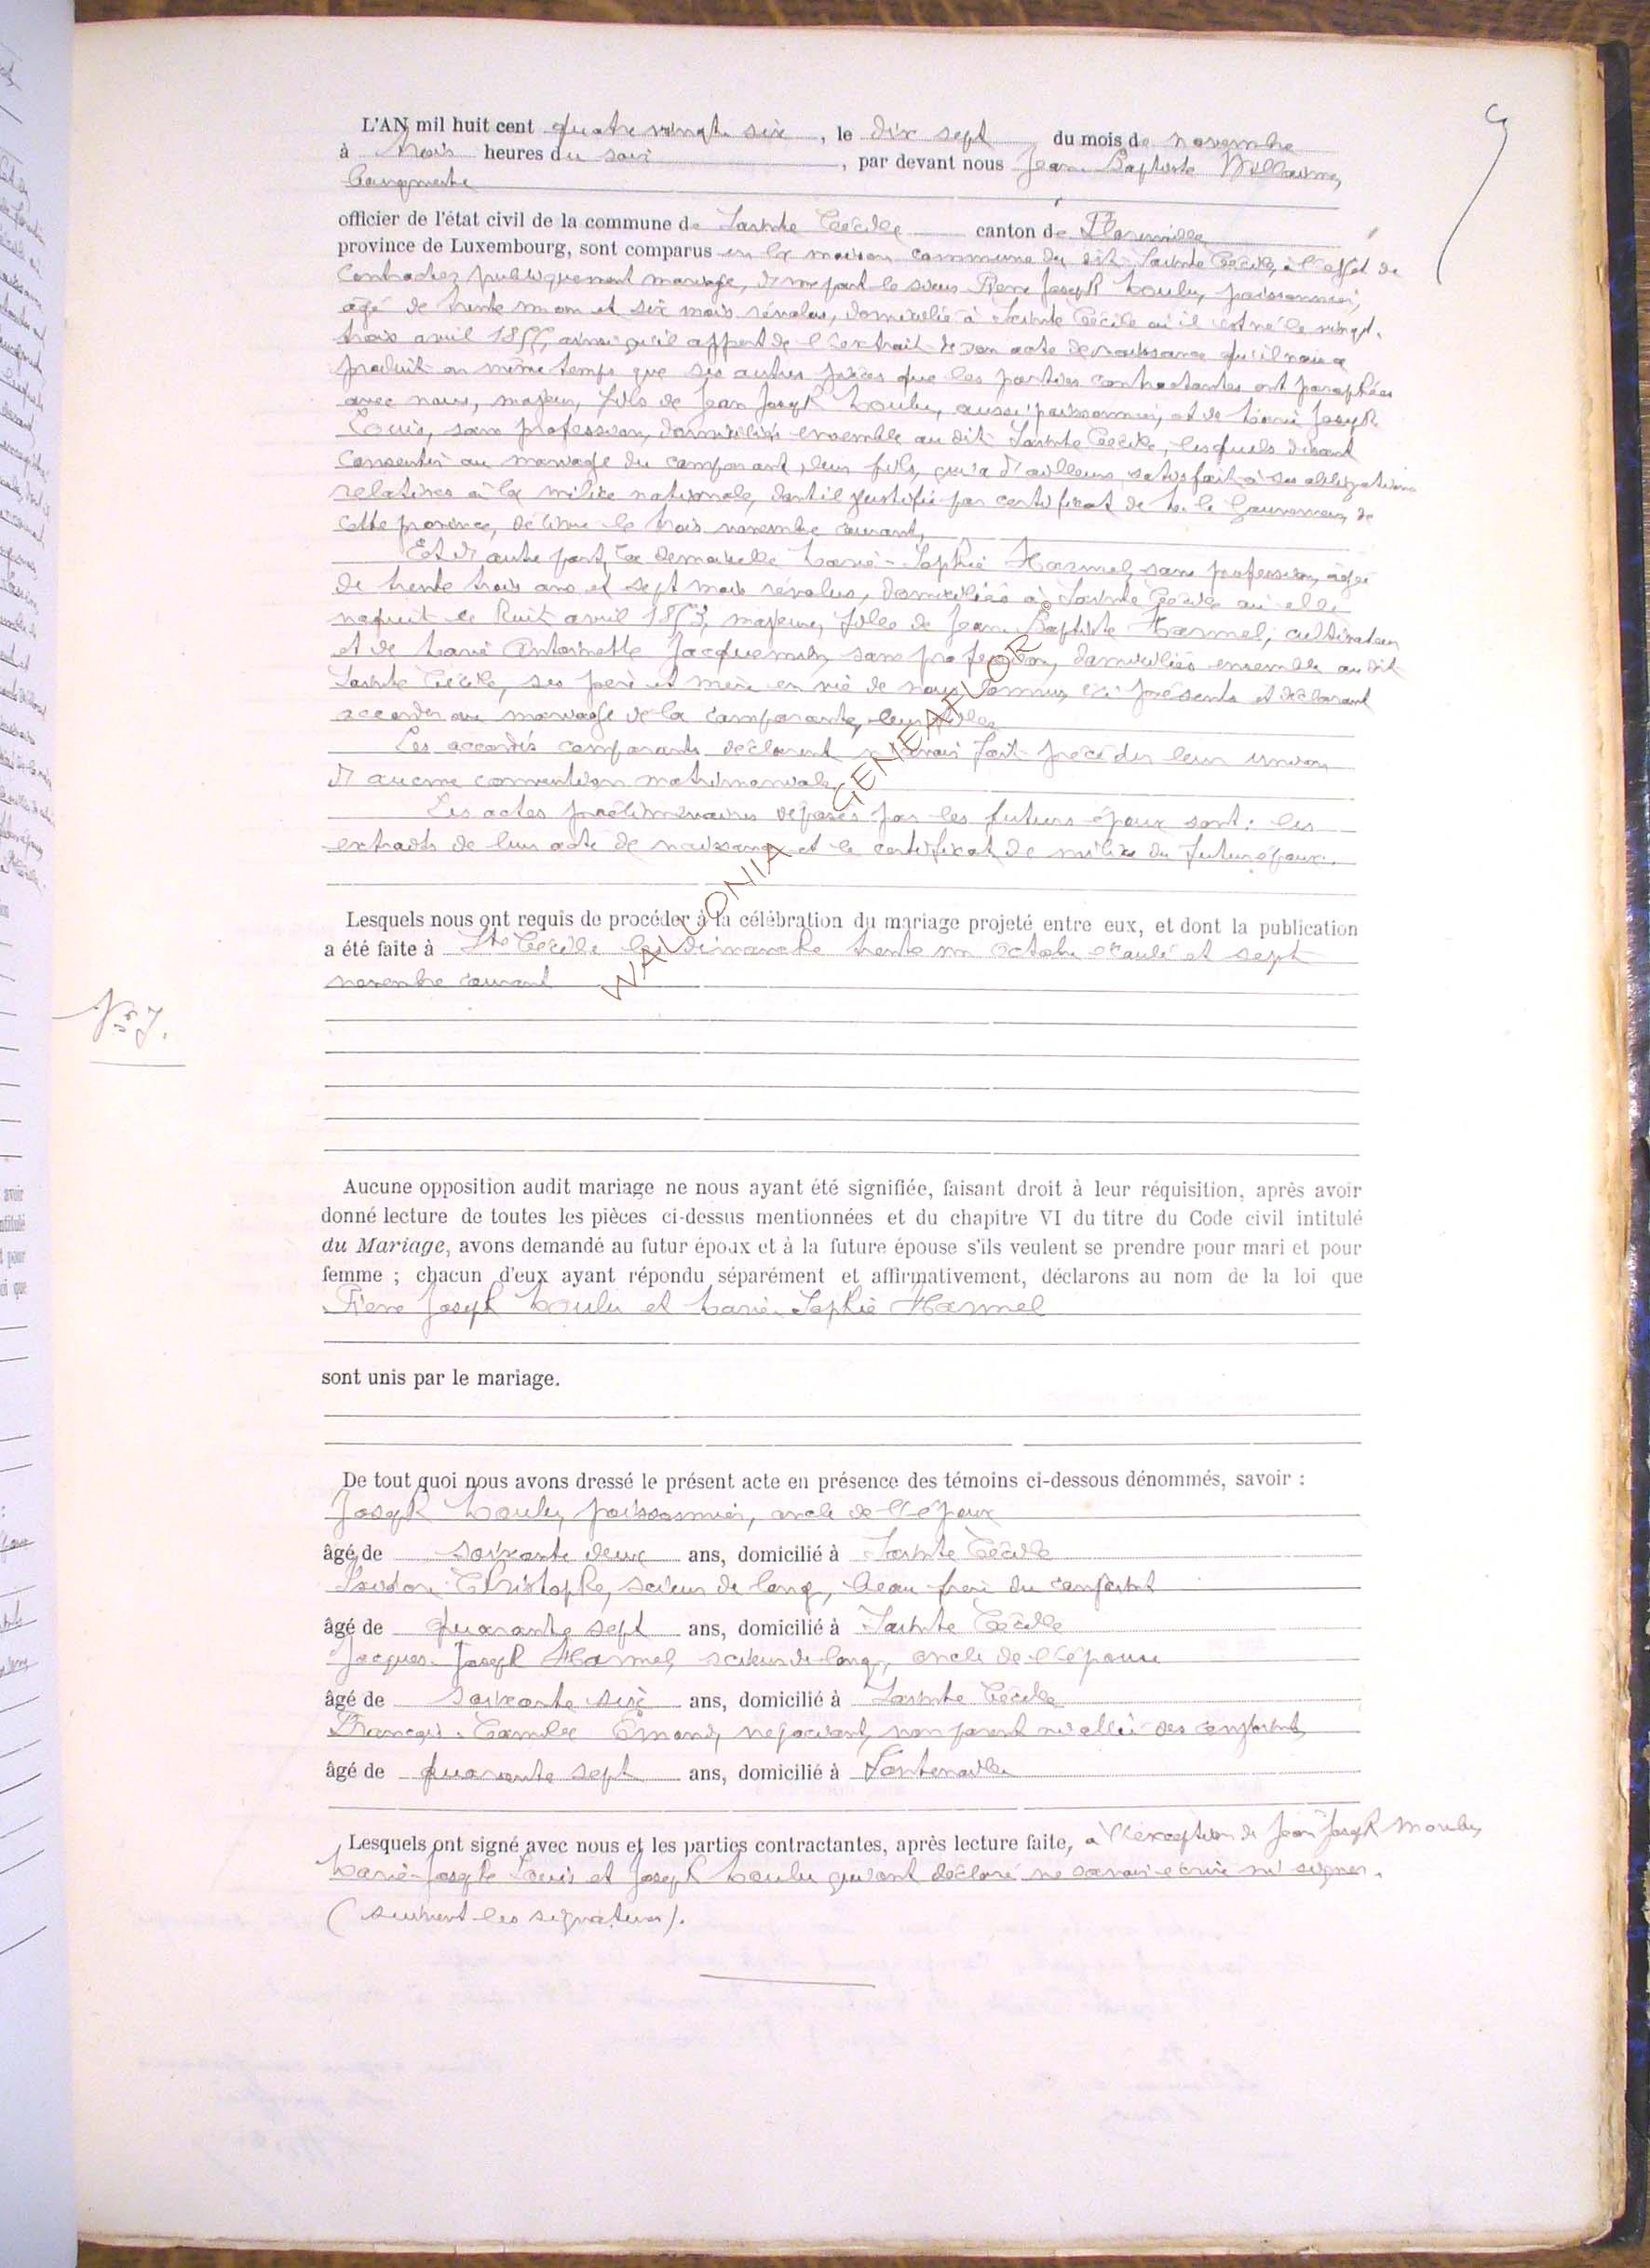 L'AN mil huit cent quatre vingt six, le dix sept du mois de novembre
à trois heures du soir, par devant nous Jean Baptiste Willaime,
bourgmestre
officier de l'état civil de la commune de Sainte Cécile canton de Florenville
province de Luxembourg, sont comparus en la maison commune du dit Sainte Cécile, à l'effet de
contracter publiquement mariage, d'une part le sieur Pierre Joseph Moulu, poissonnier,
âgé de trente un an et six mois révolus, domicilié à Sainte Cécile où il est né le vingt-
trois avril 1855, ainsi qu'il appert de l'extrait de son acte de naissance qu'il nous a
produit en même temps que les autres pièces que les parties contractantes ont paraphées
avec nous, majeur, fils de Jean Joseph Moulu, aussi poissonnier, et de Marie Joseph
Louis, sans profession, domiciliés ensemble au dit Sainte Cécile, lesquels disant
consentir au mariage du comparant, leur fils, qui a d'ailleurs satisfait à ses obligations
relatives à la milice nationale, dont il justifie par certificat de M. le Gouverneur de
cette province, délivré le trois novembre courant,
Et d'autre part, la demoiselle Marie-Sophie Harmel, sans profession, âgée
de trente trois ans et sept mois révolus, domiciliée à Sainte Cécile où elle
naquit le huit avril 1853, majeure, fille de Jean Baptiste Harmel, cultivateur
et de Marie Antoinette Jacquemin, sans profession, domiciliés ensemble au dit
Sainte Cécile, ses père et mère en vie de nous connus, ici présents et déclarant
accorder au mariage de la comparante, leur fille,
Les accordés comparants déclarent n'avoir fait précéder leur union
d'aucune convention matrimoniale
Les actes préliminaires déposés par les futurs époux sont: les
extraits de leur acte de naissance et le certificat de milice du futur époux.
Lesquels nous ont requis de procéder à la célébration du mariage projeté entre eux, et dont la publication
a été faite à Ste Cécile les dimanche trente un octobre écoulé et sept
novembre courant
WALLONIA GENEAFLOR ©
N° 7.
Aucune opposition audit mariage ne nous ayant été signifiée, faisant droit à leur réquisition, après avoir
donné lecture de toutes les pièces ci-dessus mentionnées et du chapitre VI du titre du Code civil intitulé
du Mariage, avons demandé au futur époux et à la future épouse s'ils veulent se prendre pour mari et pour
femme ; chacun d'eux ayant répondu séparément et affirmativement, déclarons au nom de la loi que
Pierre Joseph Moulu et Marie Sophie Harmel
sont unis par le mariage.
De tout quoi nous avons dressé le présent acte en présence des témoins ci-dessous dénommés, savoir :
Joseph Moulu, poissonnier, oncle de l'époux
âgé de soixante deux ans, domicilié à Sainte Cécile
Isidore Christophe, scieur de long, beau frère du comparant
âgé de quarante sept ans, domicilié à Sainte Cécile
Jacques-Joseph Harmel, scieur de long, oncle de l'épouse
âgé de soixante six ans, domicilié à Sainte Cécile
François-Camille Emond, négociant, non parent ni allié des comparants
âgé de quarante sept ans, domicilié à Fontenoille
Lesquels ont signé avec nous et les parties contractantes, après lecture faite, à l'exception de Jean Joseph Moulu,
Marie-Joseph Louis et Joseph Moulu qui ont déclaré ne savoir écrire ni signer.
(suivent les signatures).